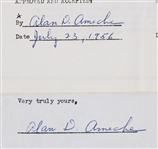 APPROVED AND ACCEPTED
By Alan D. Ameche
Date July 23, 1956
Very truly yours,
Alan D. Ameche